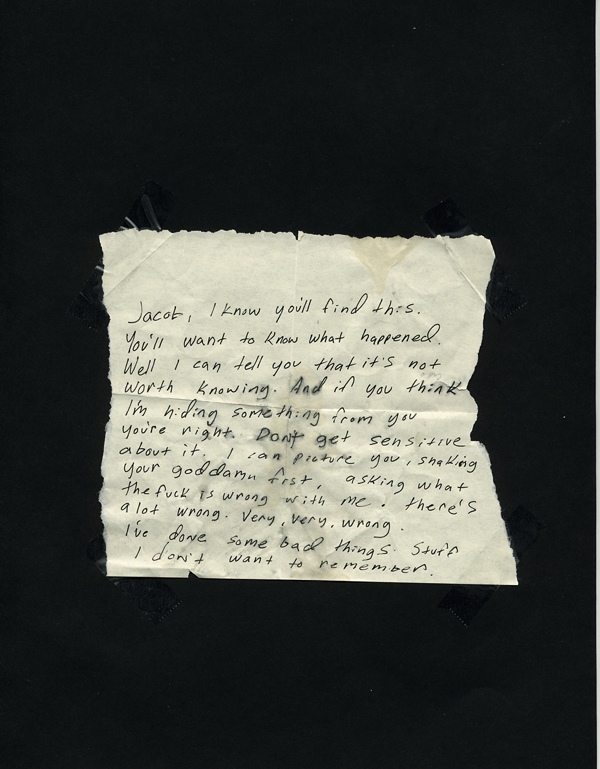 Jacob, I know you'll find this.
You'll want to know what happened.
Well I can tell you that it's not
worth knowing. And if you think
I'm hiding something from you
you're right. Don't get sensitive
about it. I can picture you, shaking
your goddamn fist, asking what
the fuck is wrong with me. there's
a lot wrong. Very, very, wrong.
I've done some bad things. Stuff
I don't want to remember.